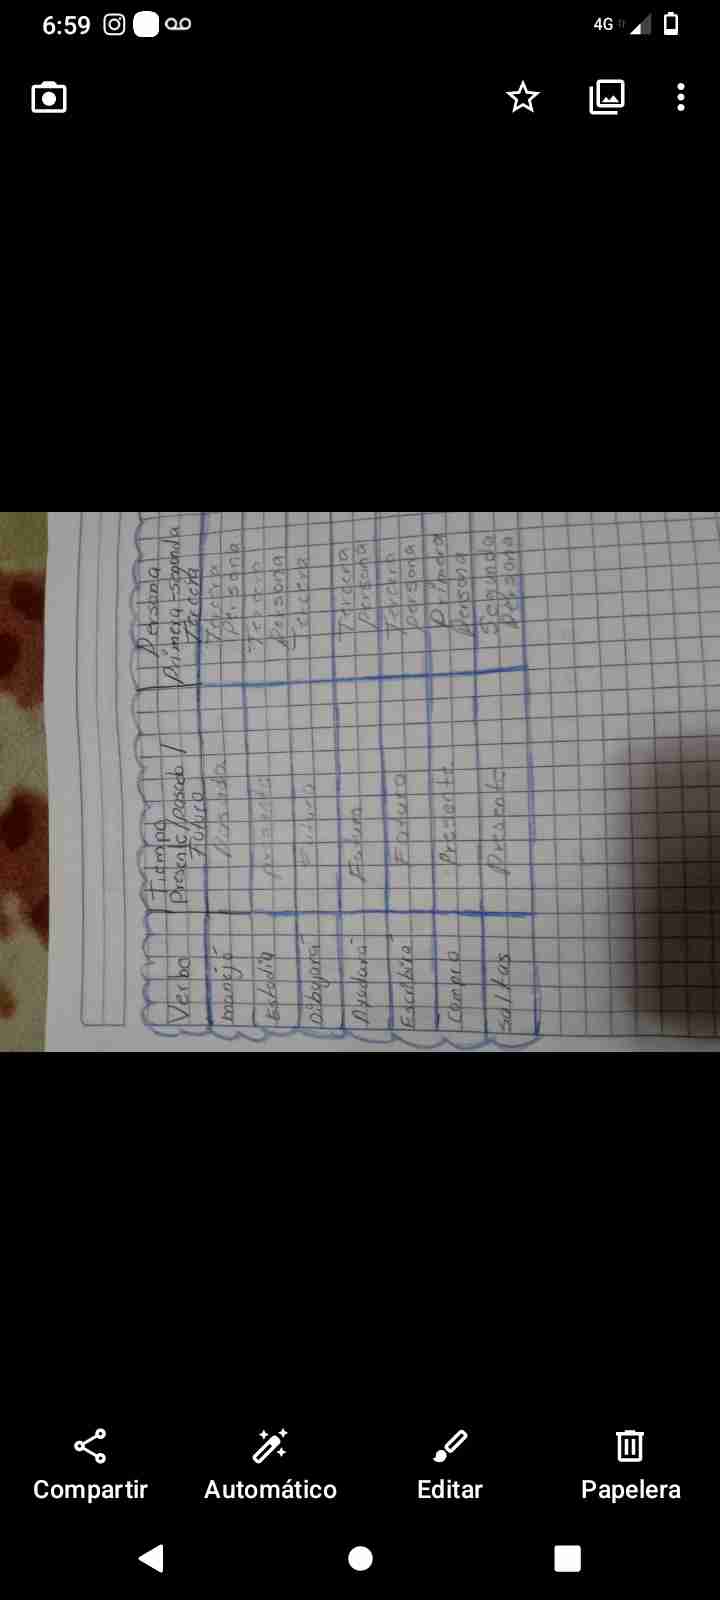 6:59
4G
Verbo
Tiempo
Presente/pasado/
Futuro
Persona
Primera-segunda
Tercera
manejó
Tercera
persona
Estudia
presente
Tercera
Persona
Dibujará
Futuro
Tercera
Ayudará
Futuro
Tercera
persona
Escribirá
Futuro
Tercera
persona
Compro
Presente
Primera
Persona
Saltas
Presente
Segunda
Persona
Compartir
Automático
Editar
Papelera